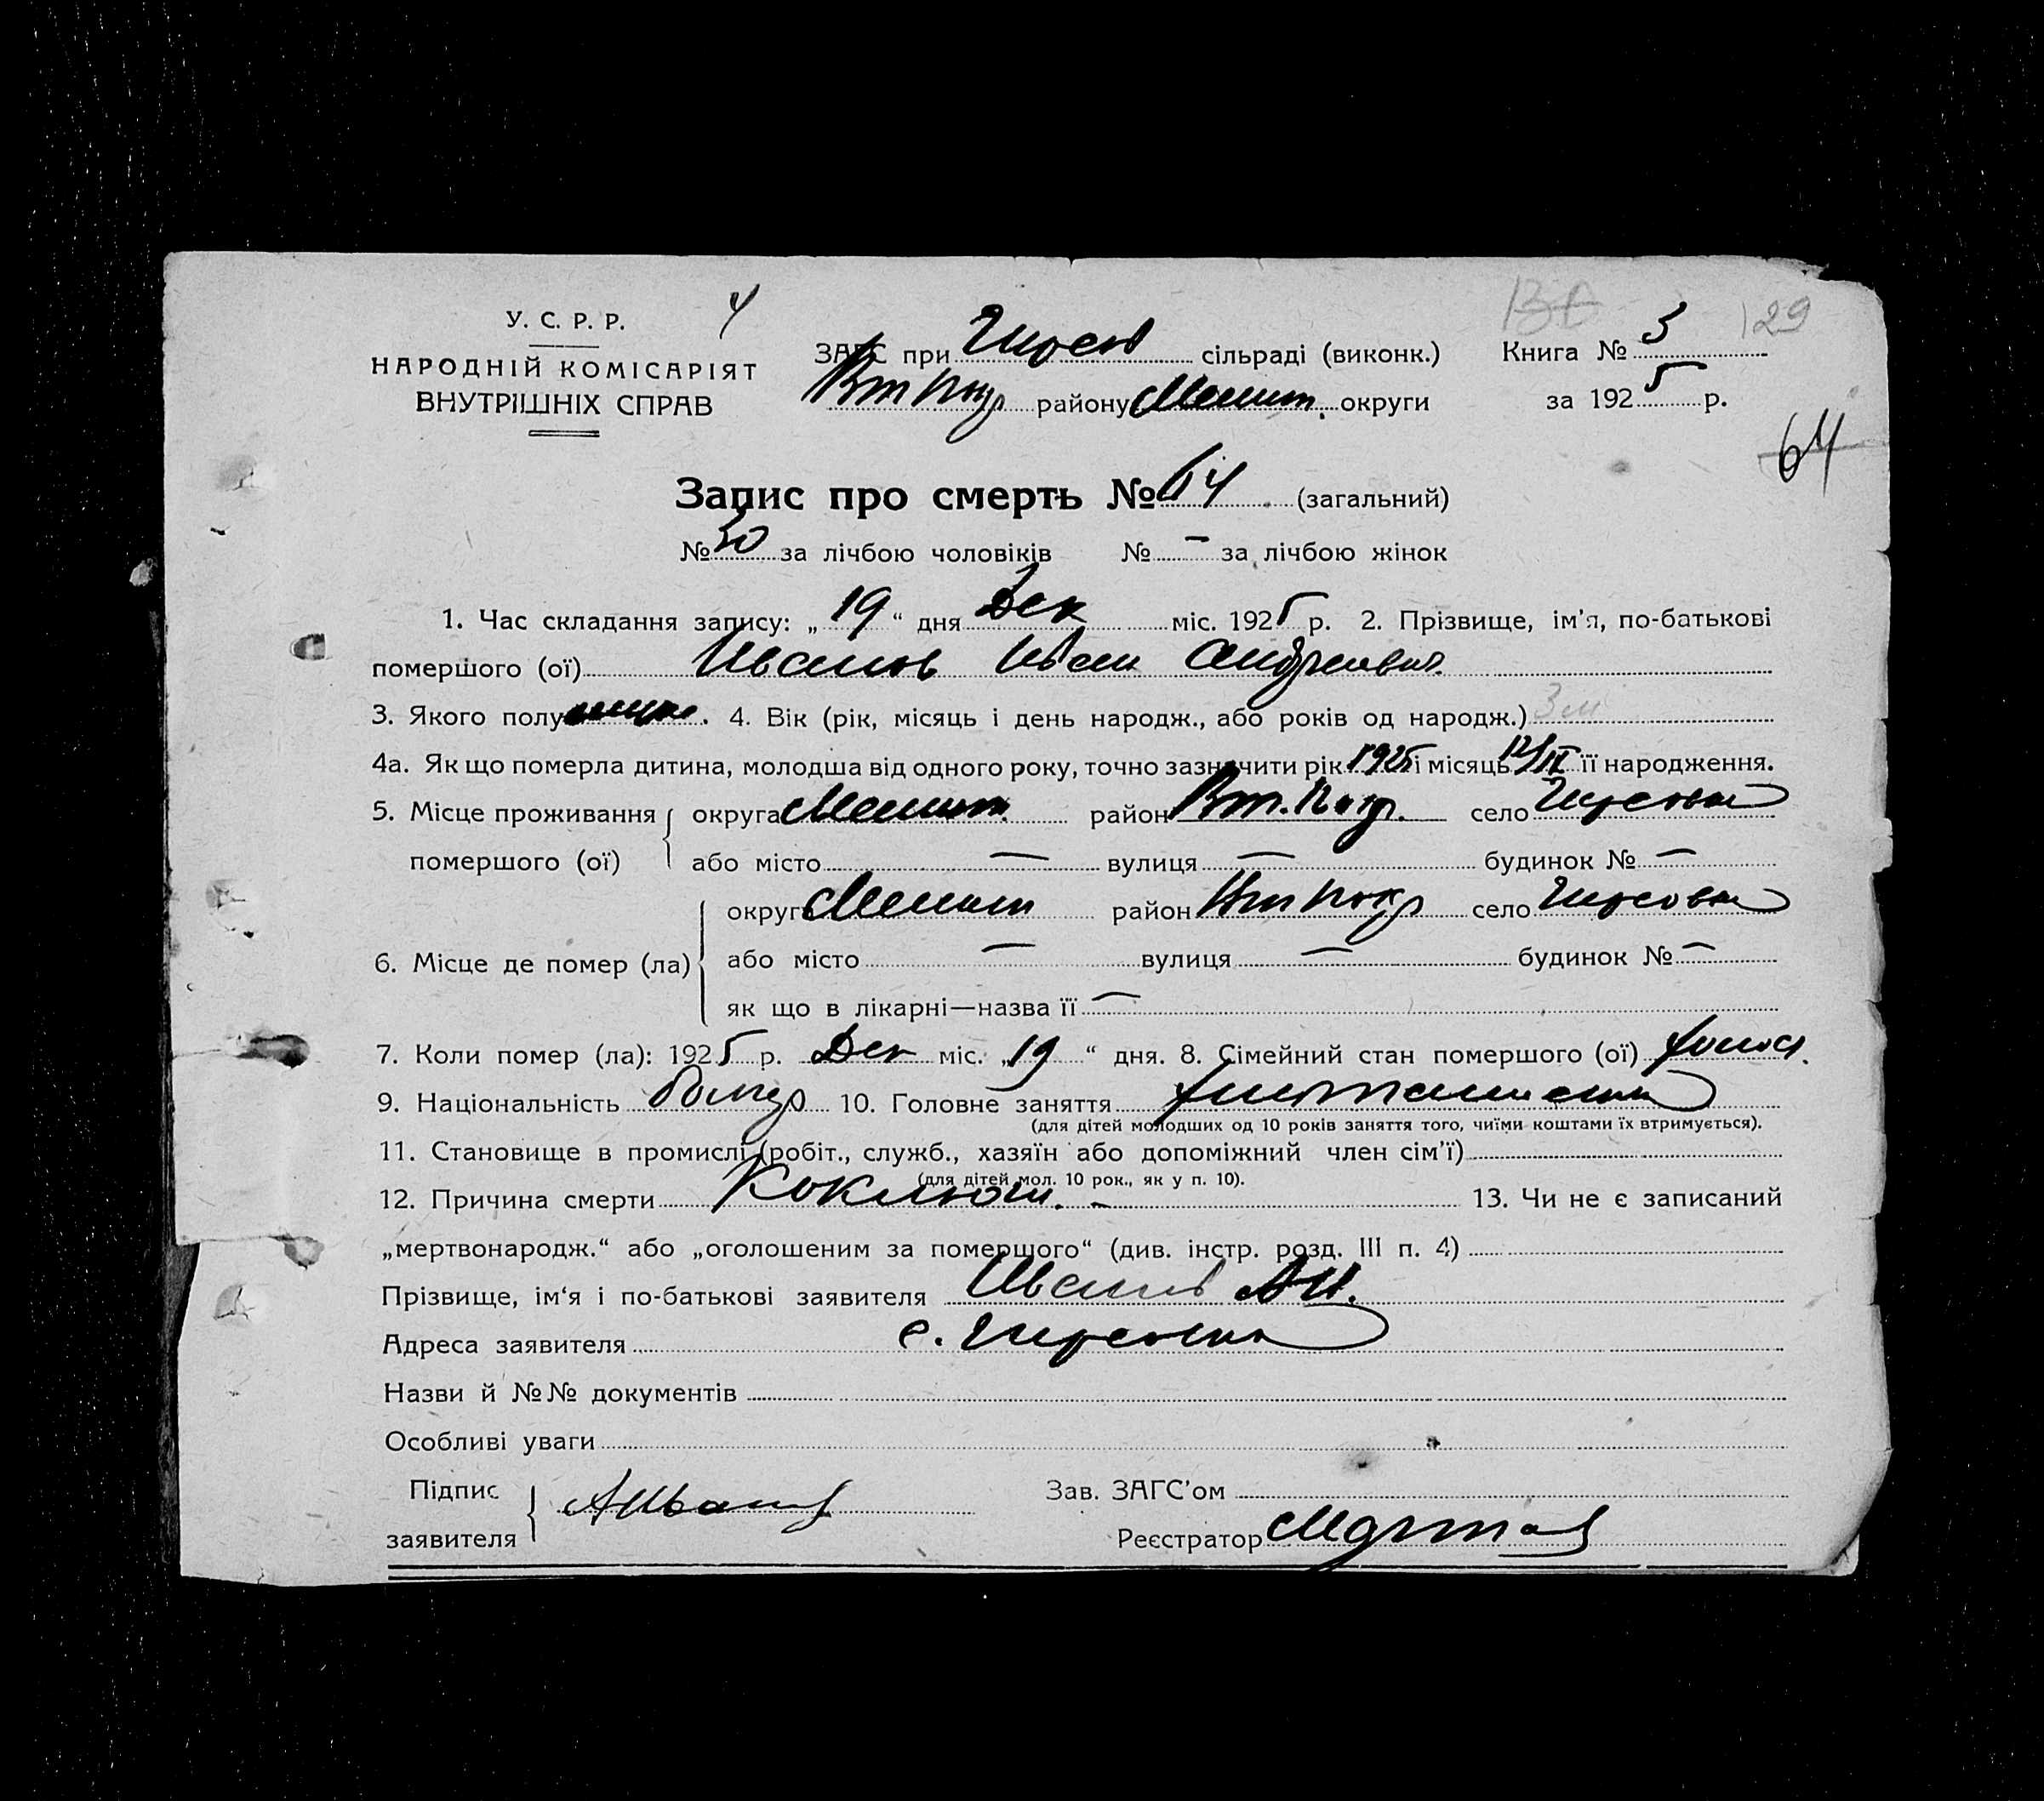 У. С. Р. Р.
НАРОДНІЙ КОМІСАРІЯТ
ВНУТРІШНІХ СПРАВ
4
ЗАГС при сільраді (виконк.)
району Мелит. округи
Книга № 3
129
за 1925 р.
64
Запис про смерть № 64 (загальний)
№ 30 за лічбою чоловіків № — за лічбою жінок
1. Час складання запису: „19“ дня Дек міс. 1925 р. 2. Прізвище, ім’я, по-батькові
помершого (ої) Иванов Иван Андреевич
3. Якого полу 4. Вік (рік, місяць і день народж., або років од народж.) 3 м
4а. Як що померла дитина, молодша від одного року, точно зазначити рік 1925 і місяць її народження.
5. Місце проживання помершого (ої) округа Мелит. район село
або місто — вулиця — будинок № —
6. Місце де помер (ла) округа Мелит район село
або місто — вулиця — будинок № —
як що в лікарні—назва її —
7. Коли помер (ла): 1925 р. Дек міс. „19“ дня. 8. Сімейний стан помершого (ої) холост.
9. Національність болгар 10. Головне заняття
(для дітей молодших од 10 років заняття того, чиїми коштами їх втримується).
11. Становище в промислі (робіт., служб., хазяїн або допоміжний член сім’ї)
(для дітей мол. 10 рок., як у п. 10).
12. Причина смерти Коклюш. – 13. Чи не є записаний
„мертвонародж.“ або „оголошеним за помершого“ (див. інстр. розд. III п. 4)
Прізвище, ім‘я і по-батькові заявителя Иванов АИ.
Адреса заявителя с.
Назви й №№ документів
Особливі уваги
Підпис заявителя АИванов
Зав. ЗАГС’ом
Реєстратор